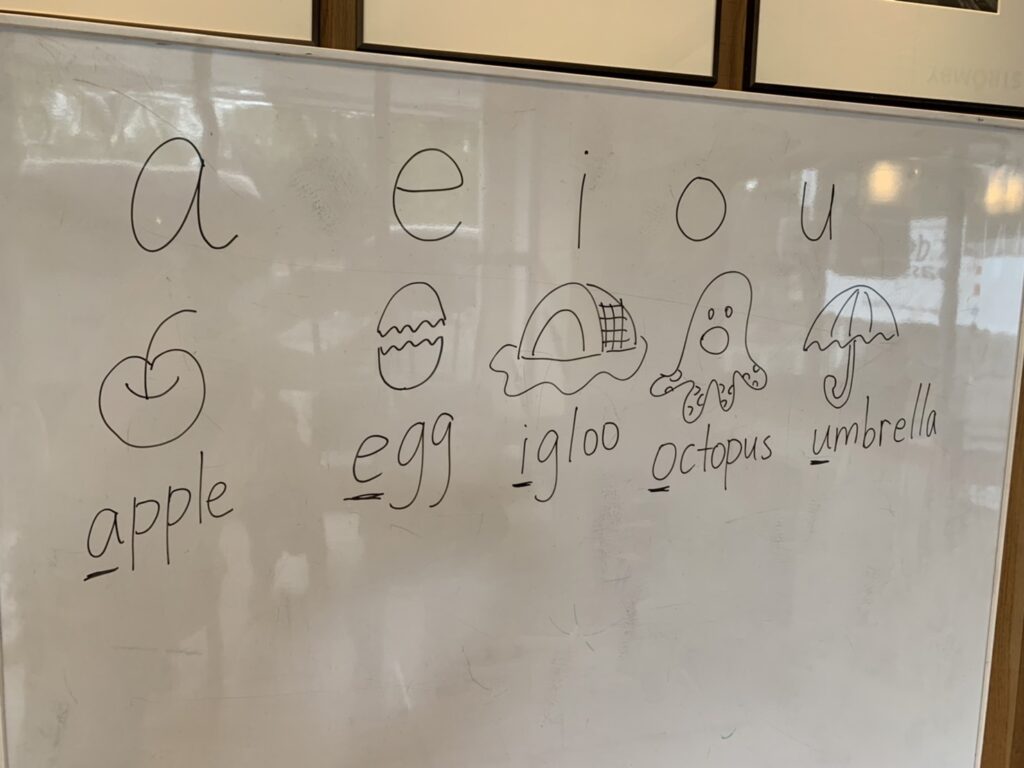 a e i o u
apple egg igloo octopus umbrella